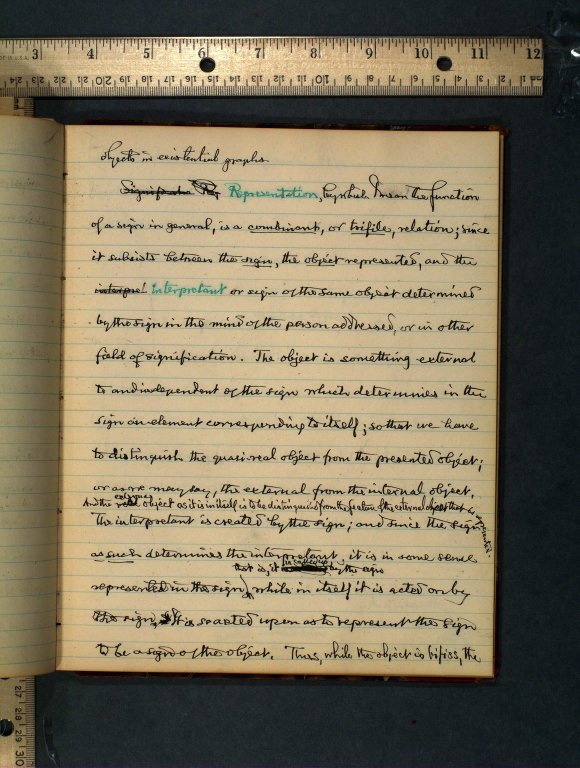 3 4 5 6 7 8 9 10 11 12
objects in existential graphs.
Representation, by which I mean the function
of a sign in general, is a combinant, or trifile, relation; since
it subsists between the sign, the object represented, and the
interpre Interpretant or sign of the same object determined
by the sign in the mind of the person addressed, or in other
field of signification. The object is something external
to and independent of the sign which determines in the
sign an element corresponding to itself; so that we have
to distinguish the quasi-real object from the presented object;
or as we may say, the external from the internal object.
And the external object as it is in itself is to be distinguished from the feature of the external object that is represented.
The interpretant is created by the sign; and since the sign
as such determines the interpretant, it is in some sense
that is, it by the sign
represented in the sign, while in itself it is acted on by
the sign, It is so acted upon as to represent the sign
to be a sign of the object. Thus, while the object is bifiss, the